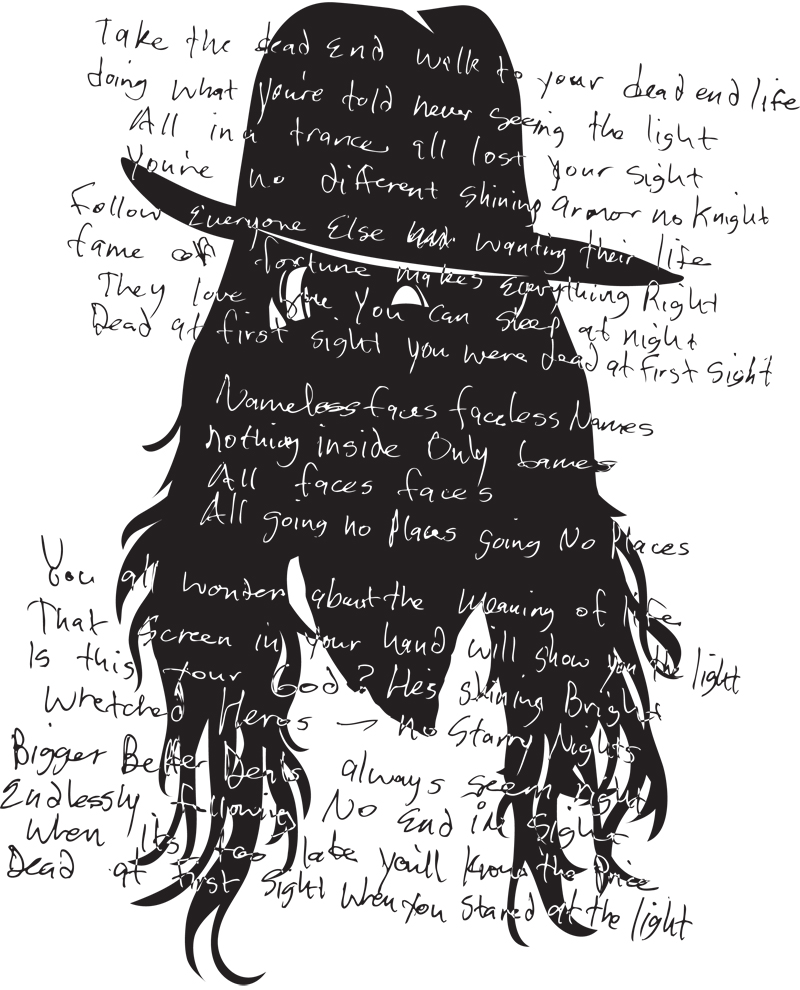 Take the dead End walk to your dead end life
doing what you're told never seeing the light
All in a trance all lost your sight
You're no different shining armor no Knight
Follow Everyone Else wanting their life
fame or fortune makes Everything Right
They love you can sleep at night
Dead at first sight you were dead at First Sight
Nameless faces faceless Names
nothing inside Only Games
All faces faces
All going no Places going No Places
You all wonder about the Meaning of life
That Screen in your hand will show you the light
Is this your God? He's shining Bright
Wretched Heros no Starry Nights
Bigger Better always seem right
Endlessly following No End in Sight
When Its too late you'll know the Price
Dead at First Sight When You Stared at the light